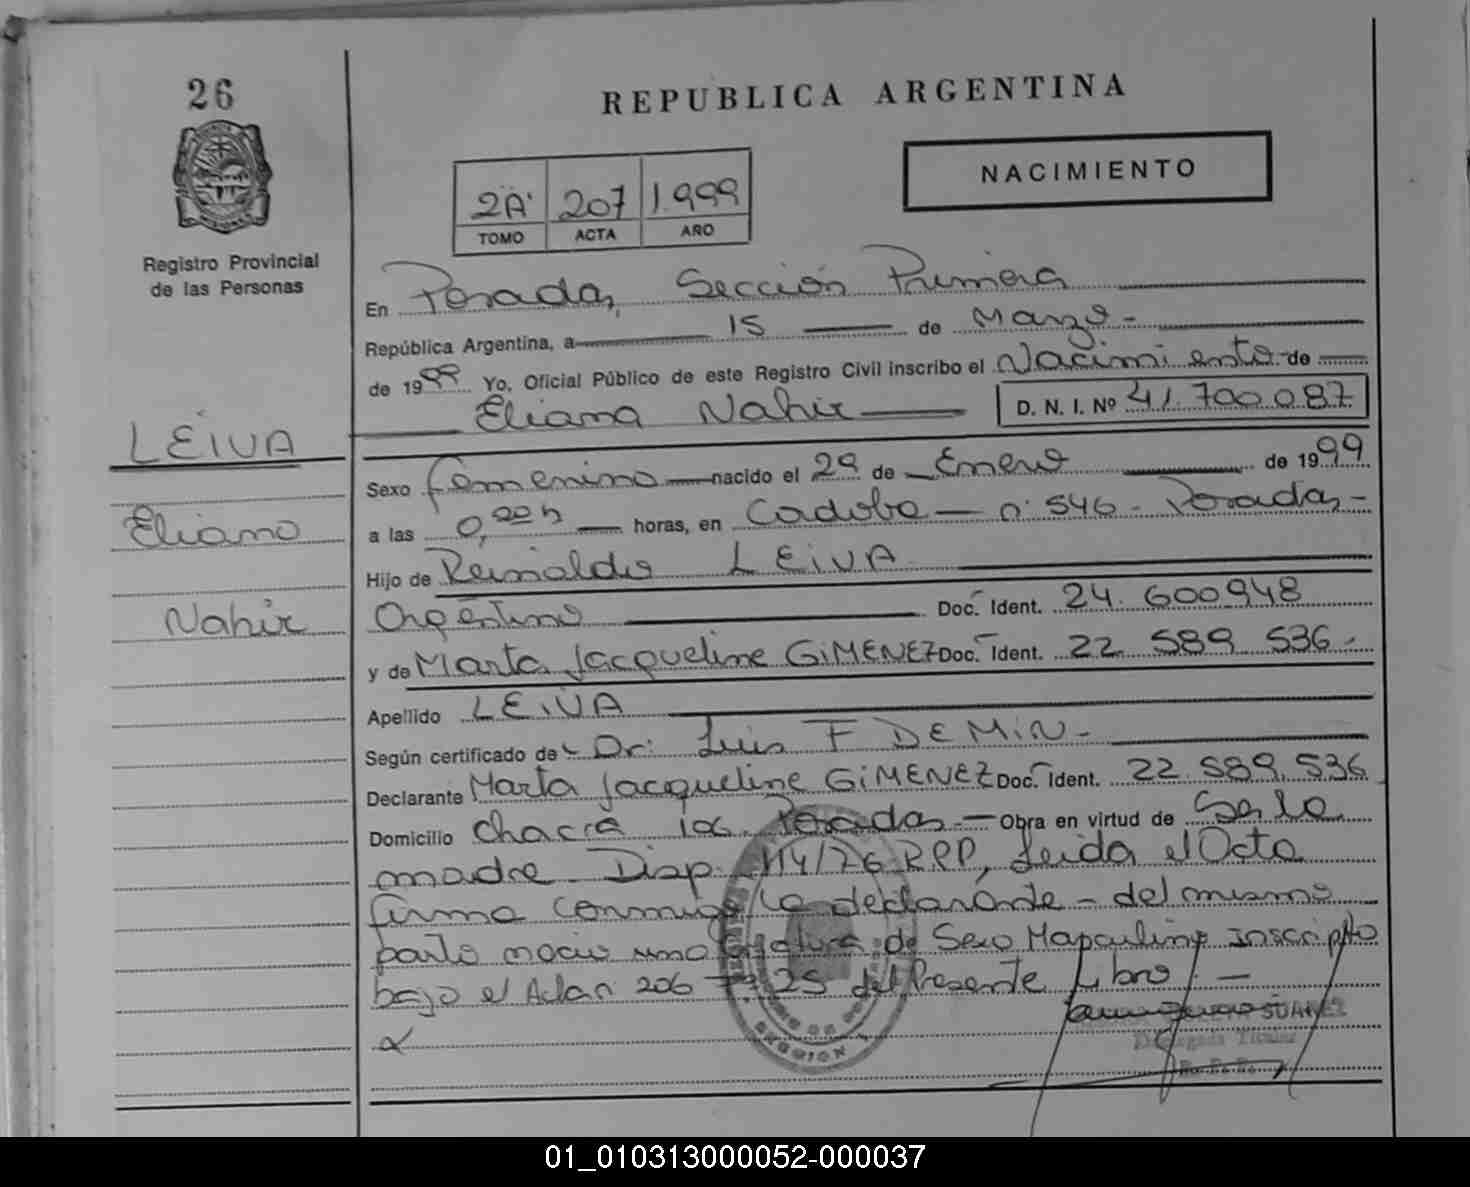 26
REPUBLICA ARGENTINA
NACIMIENTO
2A 207 1.999
TOMO ACTA AÑO
Registro Provincial
de las Personas
En Posadas, Sección Primera
República Argentina, a 15 de Marzo -
de 1999 Yo, Oficial Público de este Registro Civil inscribo el Nacimiento de
Eliana Nahir D. N. I. Nº 41.700.087
LEIVA
Eliana
Nahir
Sexo femenino nacido el 29 de Enero de 1999
a las 0,00 h horas, en Cordoba - nº 546 - Posadas -
Hijo de Reinaldo LEIVA
Argentino Doc. Ident. 24.600948
y de Marta Jacqueline GIMENEZ Doc. Ident. 22 589 536 -
Apellido LEIVA
Según certificado de - Dr: Luis F DEMIN -
Declarante Marta Jacqueline GIMENEZ Doc. Ident. 22.589.536
Domicilio Chacra 106 Posadas - Obra en virtud de Ser la
madre - Disp. 114/76 RPP, Leida el Acta
firma conmigo la declarante - del mismo
parto nacio una criatura de Sexo Masculino inscripto
bajo el Acta nº 206 Fº 25 del Presente Libro -
SUAREZ
Delegada Titular
01_010313000052-000037